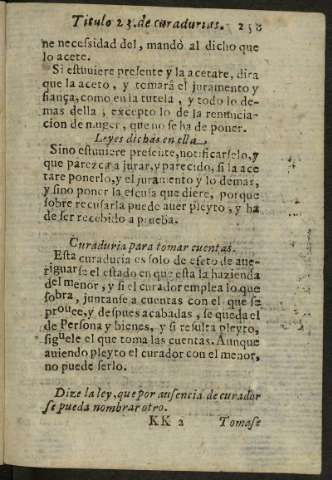 Titulo 23. de curadurias. 258
ne necessidad del, mandò al dicho que
lo acete.
Si estuuiere presente y la acetare, dira
que la aceto, y tomarà el juramento y
fiança, como en la tutela, y todo lo de-
mas della; excepto lo de la renuncia-
cion de muger, que no se ha de poner.
Leyes dichas en ella.
Sino estuuiere presente, notificarselo, y
que parezca a jurar, y parecido, si la ace
tare ponerlo, y el juramento y lo demas,
y sino poner la escusa que diere, porque
sobre recusarla puede auer pleyto, y ha
de ser recebido a prueba.
Curaduria para tomar cuentas.
Esta curaduria es solo de efeto de aue-
riguar se el estado en que esta la hazienda
del menor, y si el curador emplea lo que
sobra, juntanse a cuentas con el que se
prouee, y despues acabadas, se queda el
de Persona y bienes, y si resulta pleyto,
siguele el que toma las cuentas. Aunque
auiendo pleyto el curador con el menor,
no puede serlo.
Dize la ley, que por ausencia de curador
se pueda nombrar otro.
KK 2 Tomase